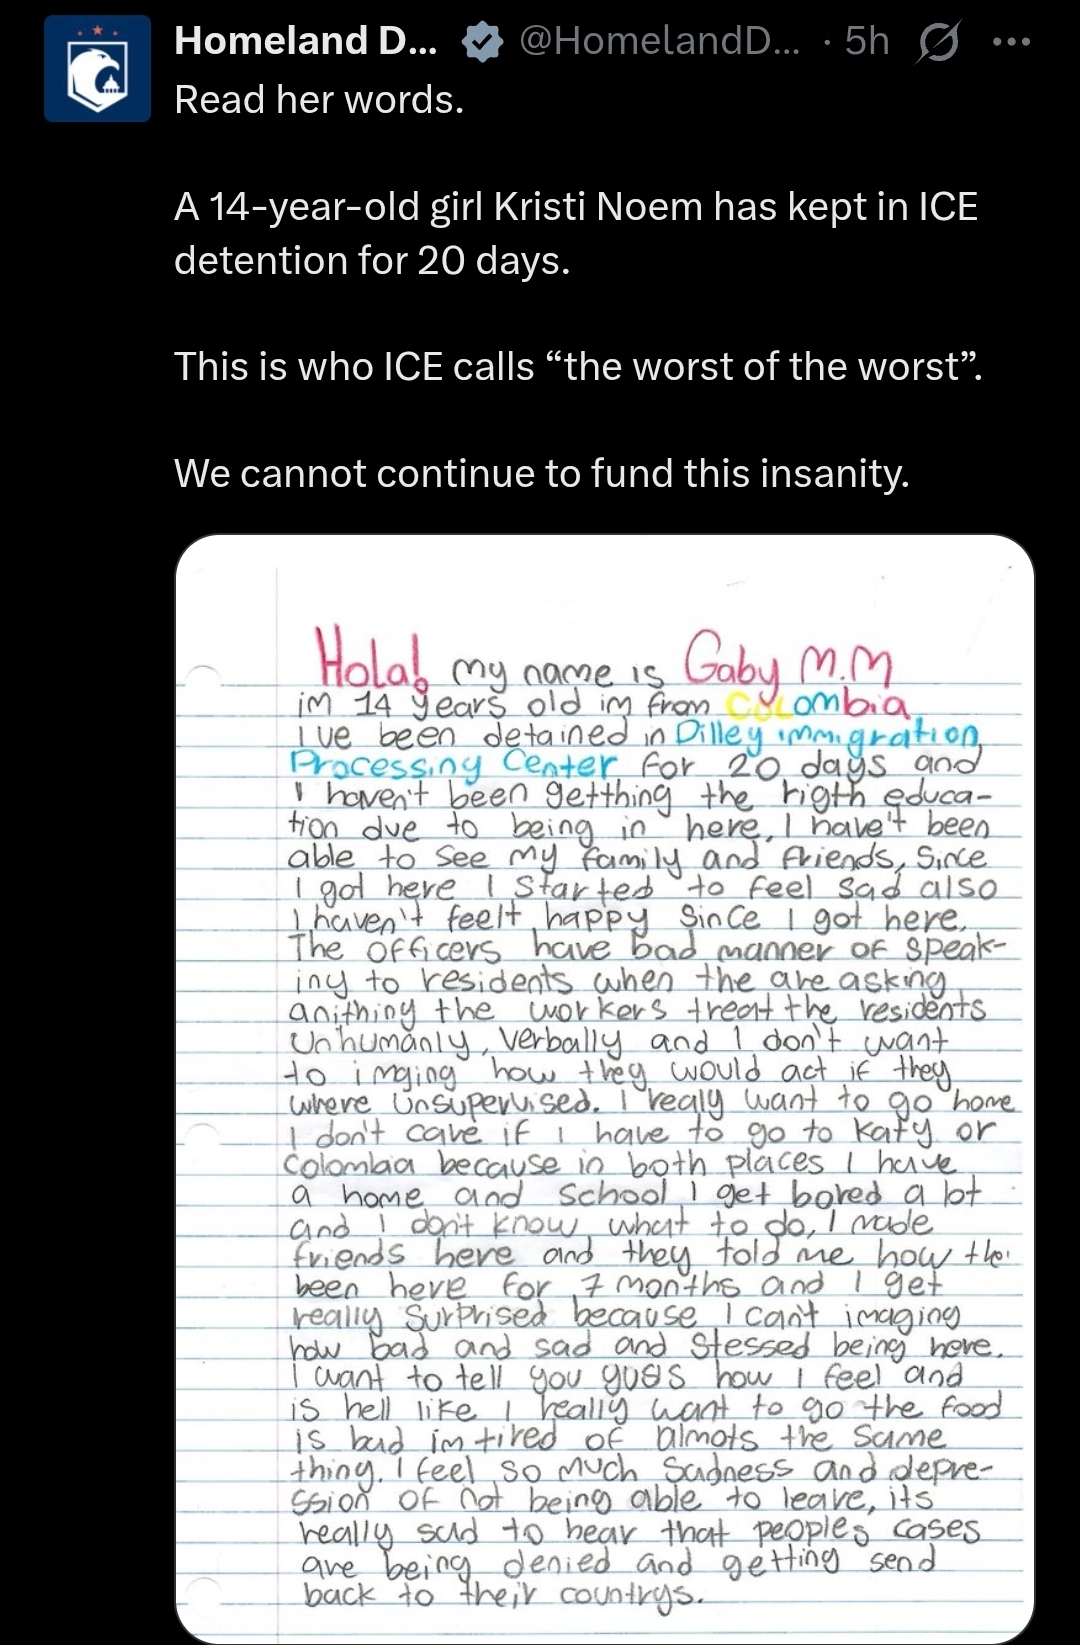 Homeland D... @HomelandD... · 5h
Read her words.
A 14-year-old girl Kristi Noem has kept in ICE
detention for 20 days.
This is who ICE calls “the worst of the worst”.
We cannot continue to fund this insanity.
Hola! my name is Gaby M.M
im 14 years old im from Colombia
I've been detained in Dilley immigration
Processing Center for 20 days and
I haven't been getthing the rigth educa-
tion due to being in here, I have't been
able to see my family and friends, Since
I got here I Started to feel sad also
I haven't feelt happy Since I got here.
The officers have bad manner of speak-
iny to residents when the are asking
anithing the workers treat the residents
Unhumanly, verbally and I don't want
to imging how they would act if they
where unsupervised. I realy want to go home
I don't care if I have to go to Katy or
Colombia because in both places I have
a home and school I get bored a lot
and I don't know what to do, I made
friends here and they told me how the
been here for 7 months and I get
really Surprised because I can't imaging
how bad and sad and Stessed being here.
I want to tell you guys how I feel and
is hell like I really want to go the food
is bad im tired of almots the same
thing. I feel so much Sadness and depre-
ssion of not being able to leave, its
really sad to hear that peoples cases
are being denied and getting send
back to their countrys.